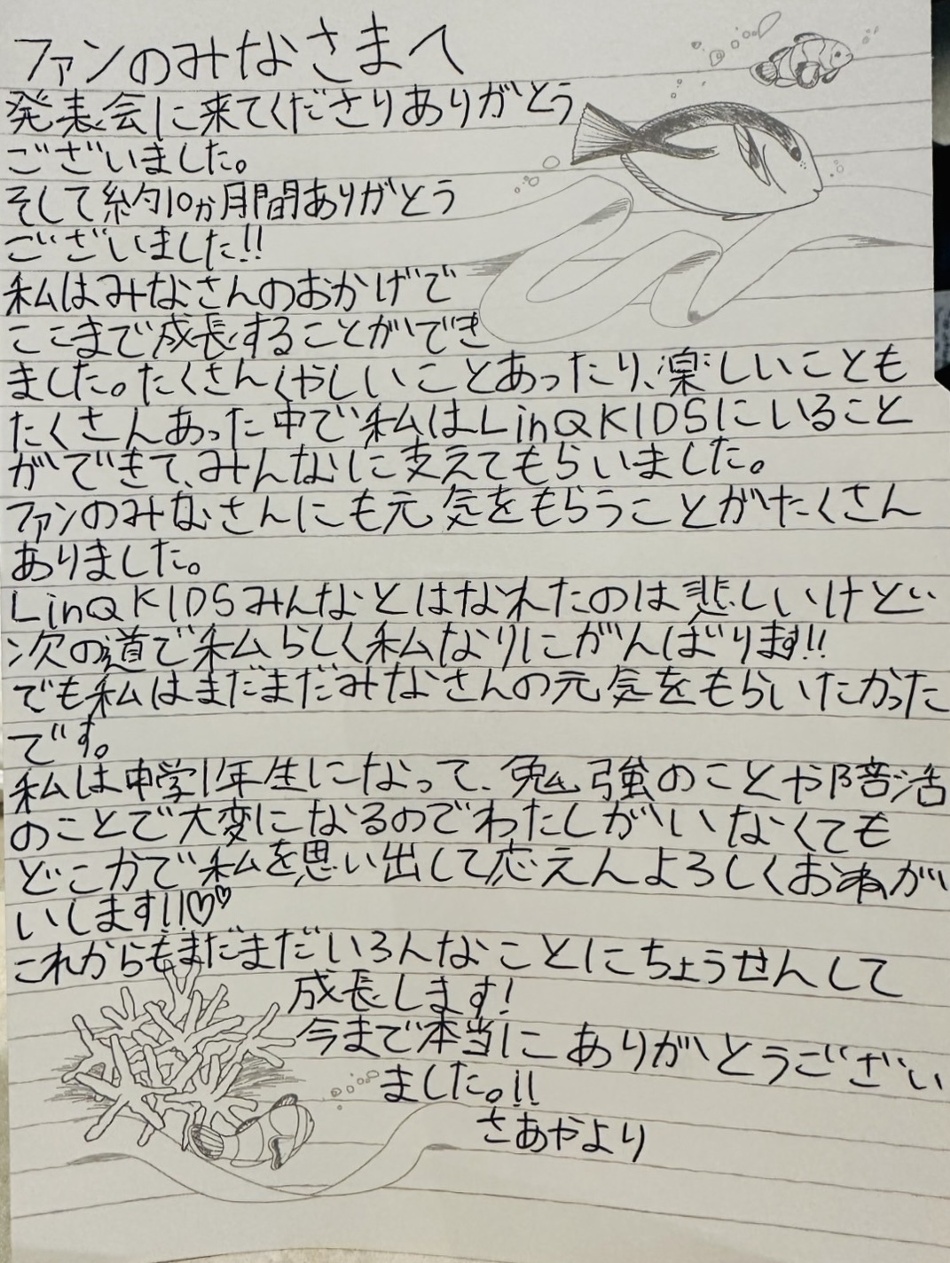 ファンのみなさまへ
発表会に来てくださりありがとう
ございました。
そして約10ヵ月間ありがとう
ございました!!
私はみなさんのおかげで
ここまで成長することができ
ました。たくさんくやしいことあったり、楽しいことも
たくさんあった中で私はLinQ KIDSにいること
ができて、みんなに支えてもらいました。
ファンのみなさんにも元気をもらうことがたくさん
ありました。
LinQ KIDSみんなとはなれたのは悲しいけどい
次の道で私らしく私なりにがんばります!!
でも私はまだまだみなさんの元気をもらいたかった
です。
私は中学1年生になって、勉強のことや部活
のことで大変になるのでわたしがいなくても
どこかで私を思い出して応えんよろしくおねが
いします!!♡♡
これからもまだまだいろんなことにちょうせんして
成長します!
今まで本当にありがとうござい
ました。!!
さあやより